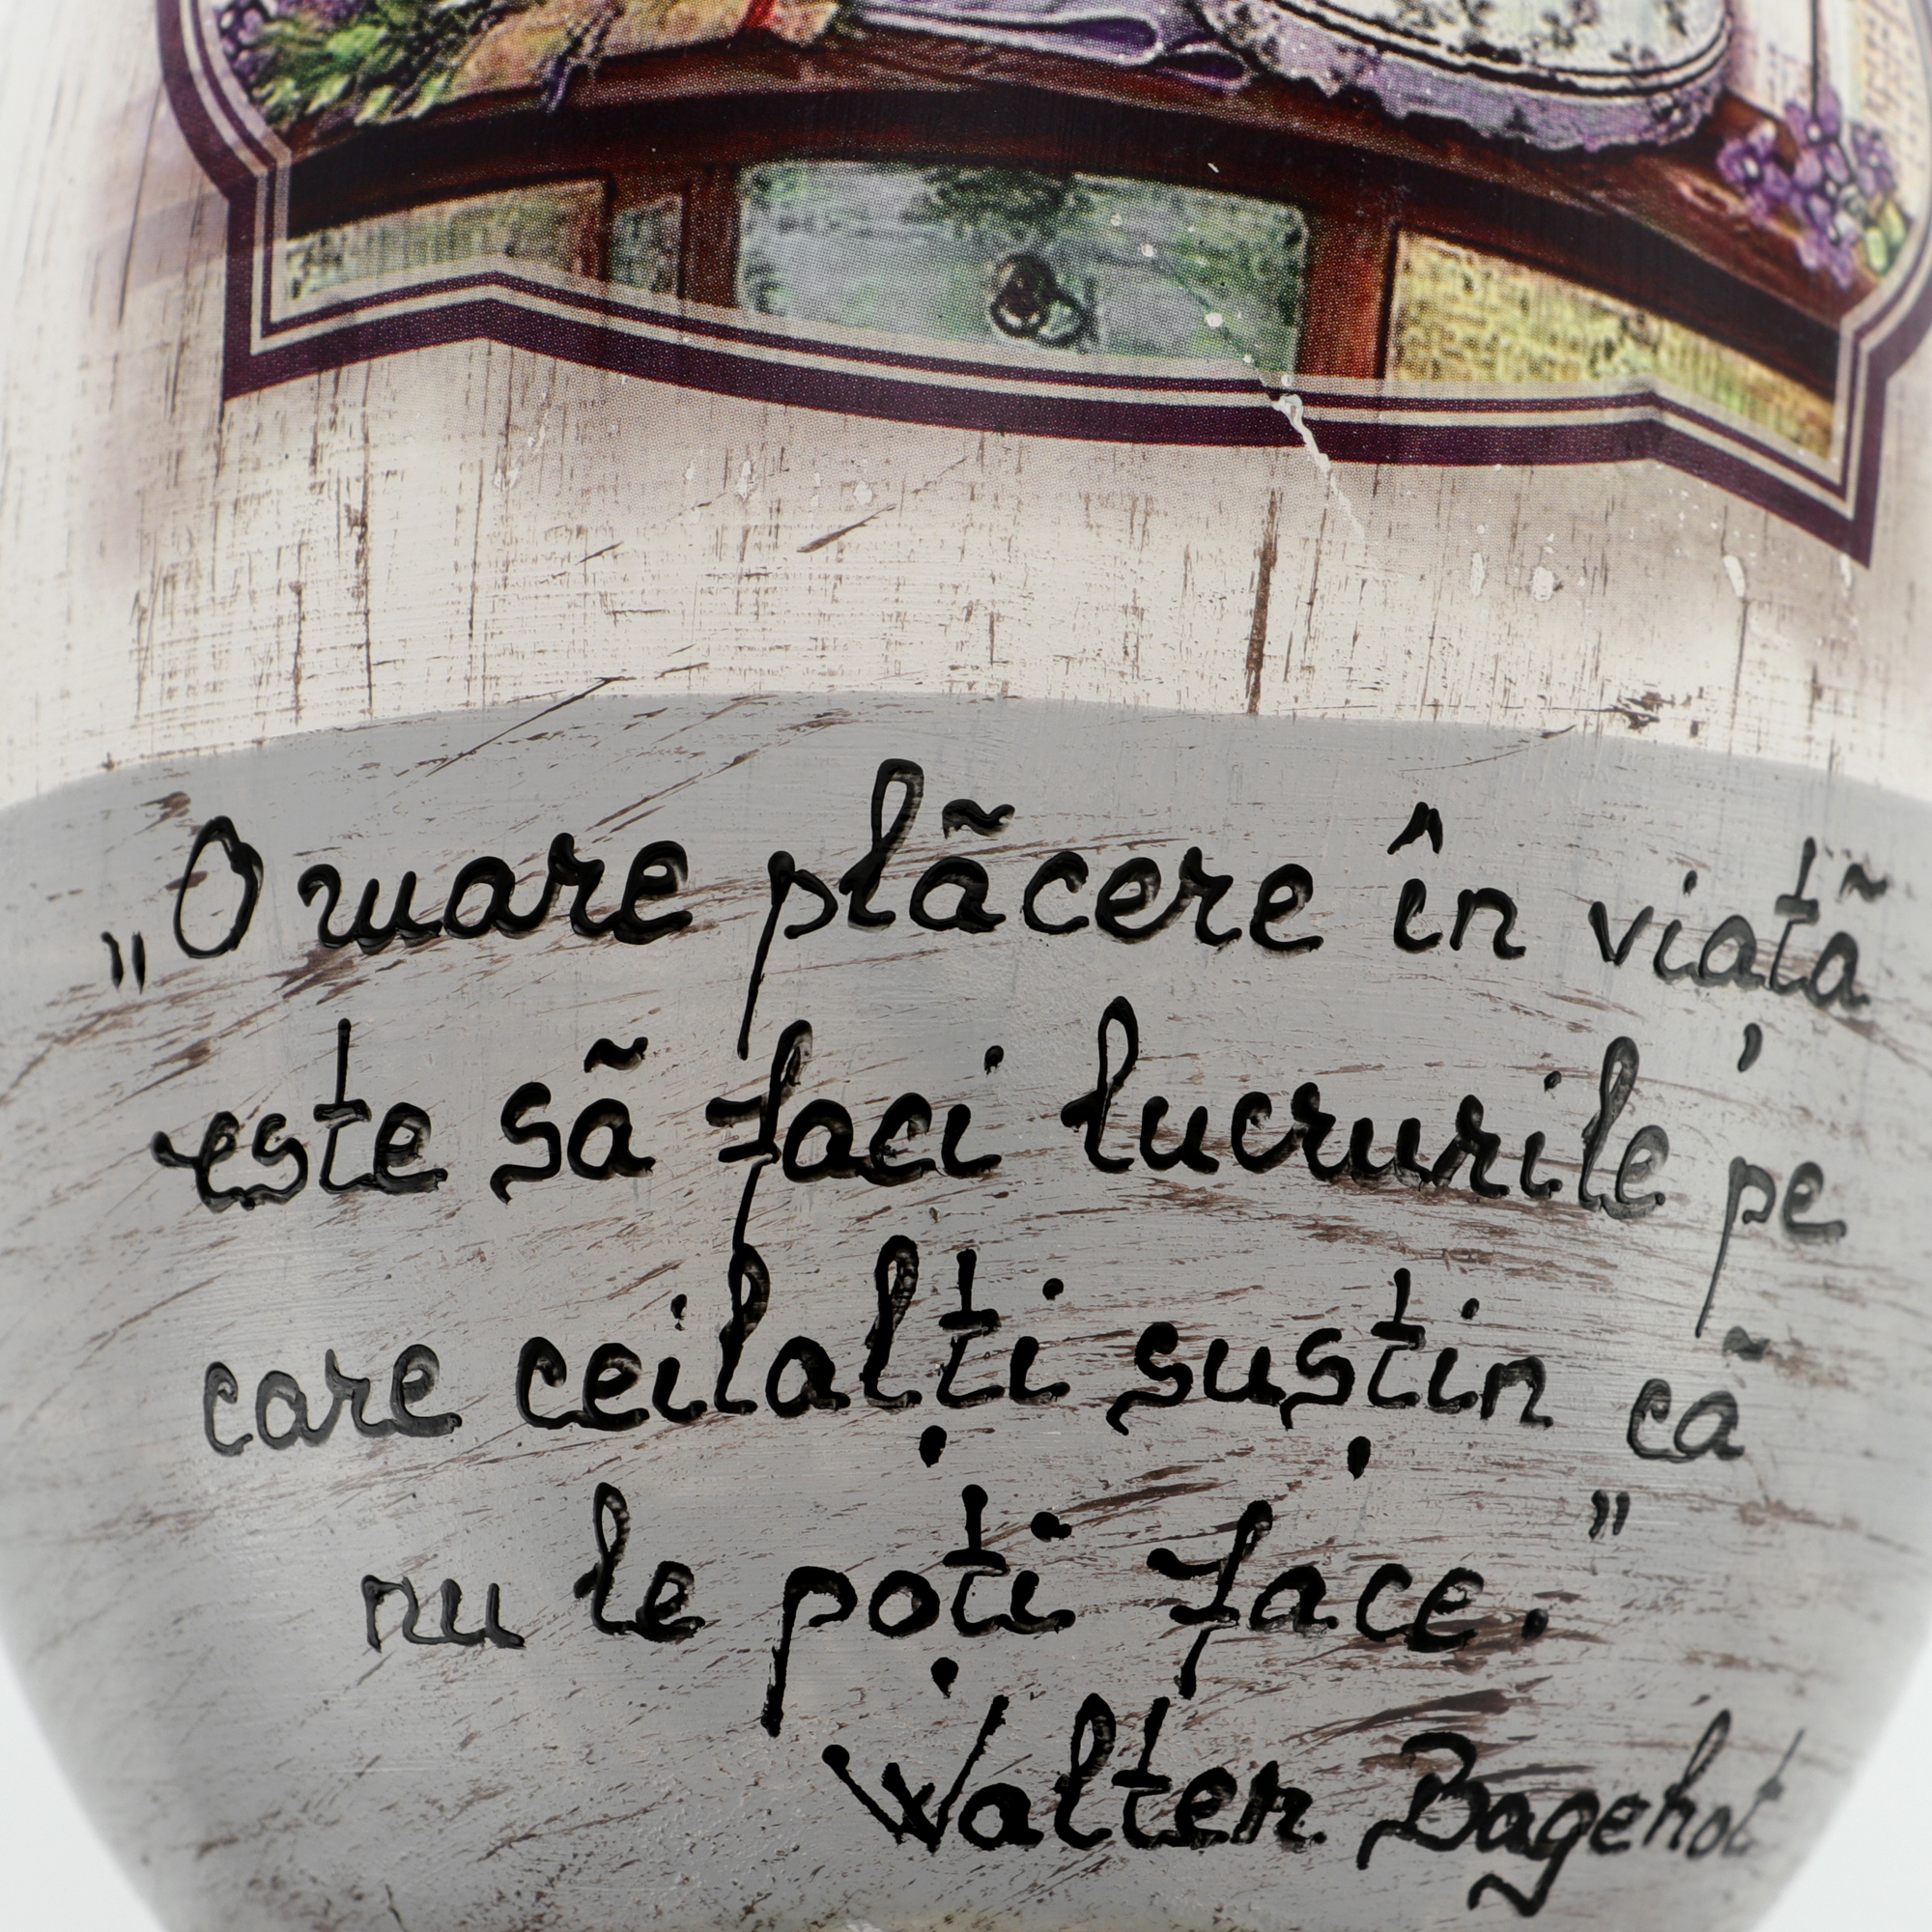 „O mare plăcere în viață
este să faci lucrurile pe
care ceilalți susțin că
nu le poți face.”
Walter Bagehot